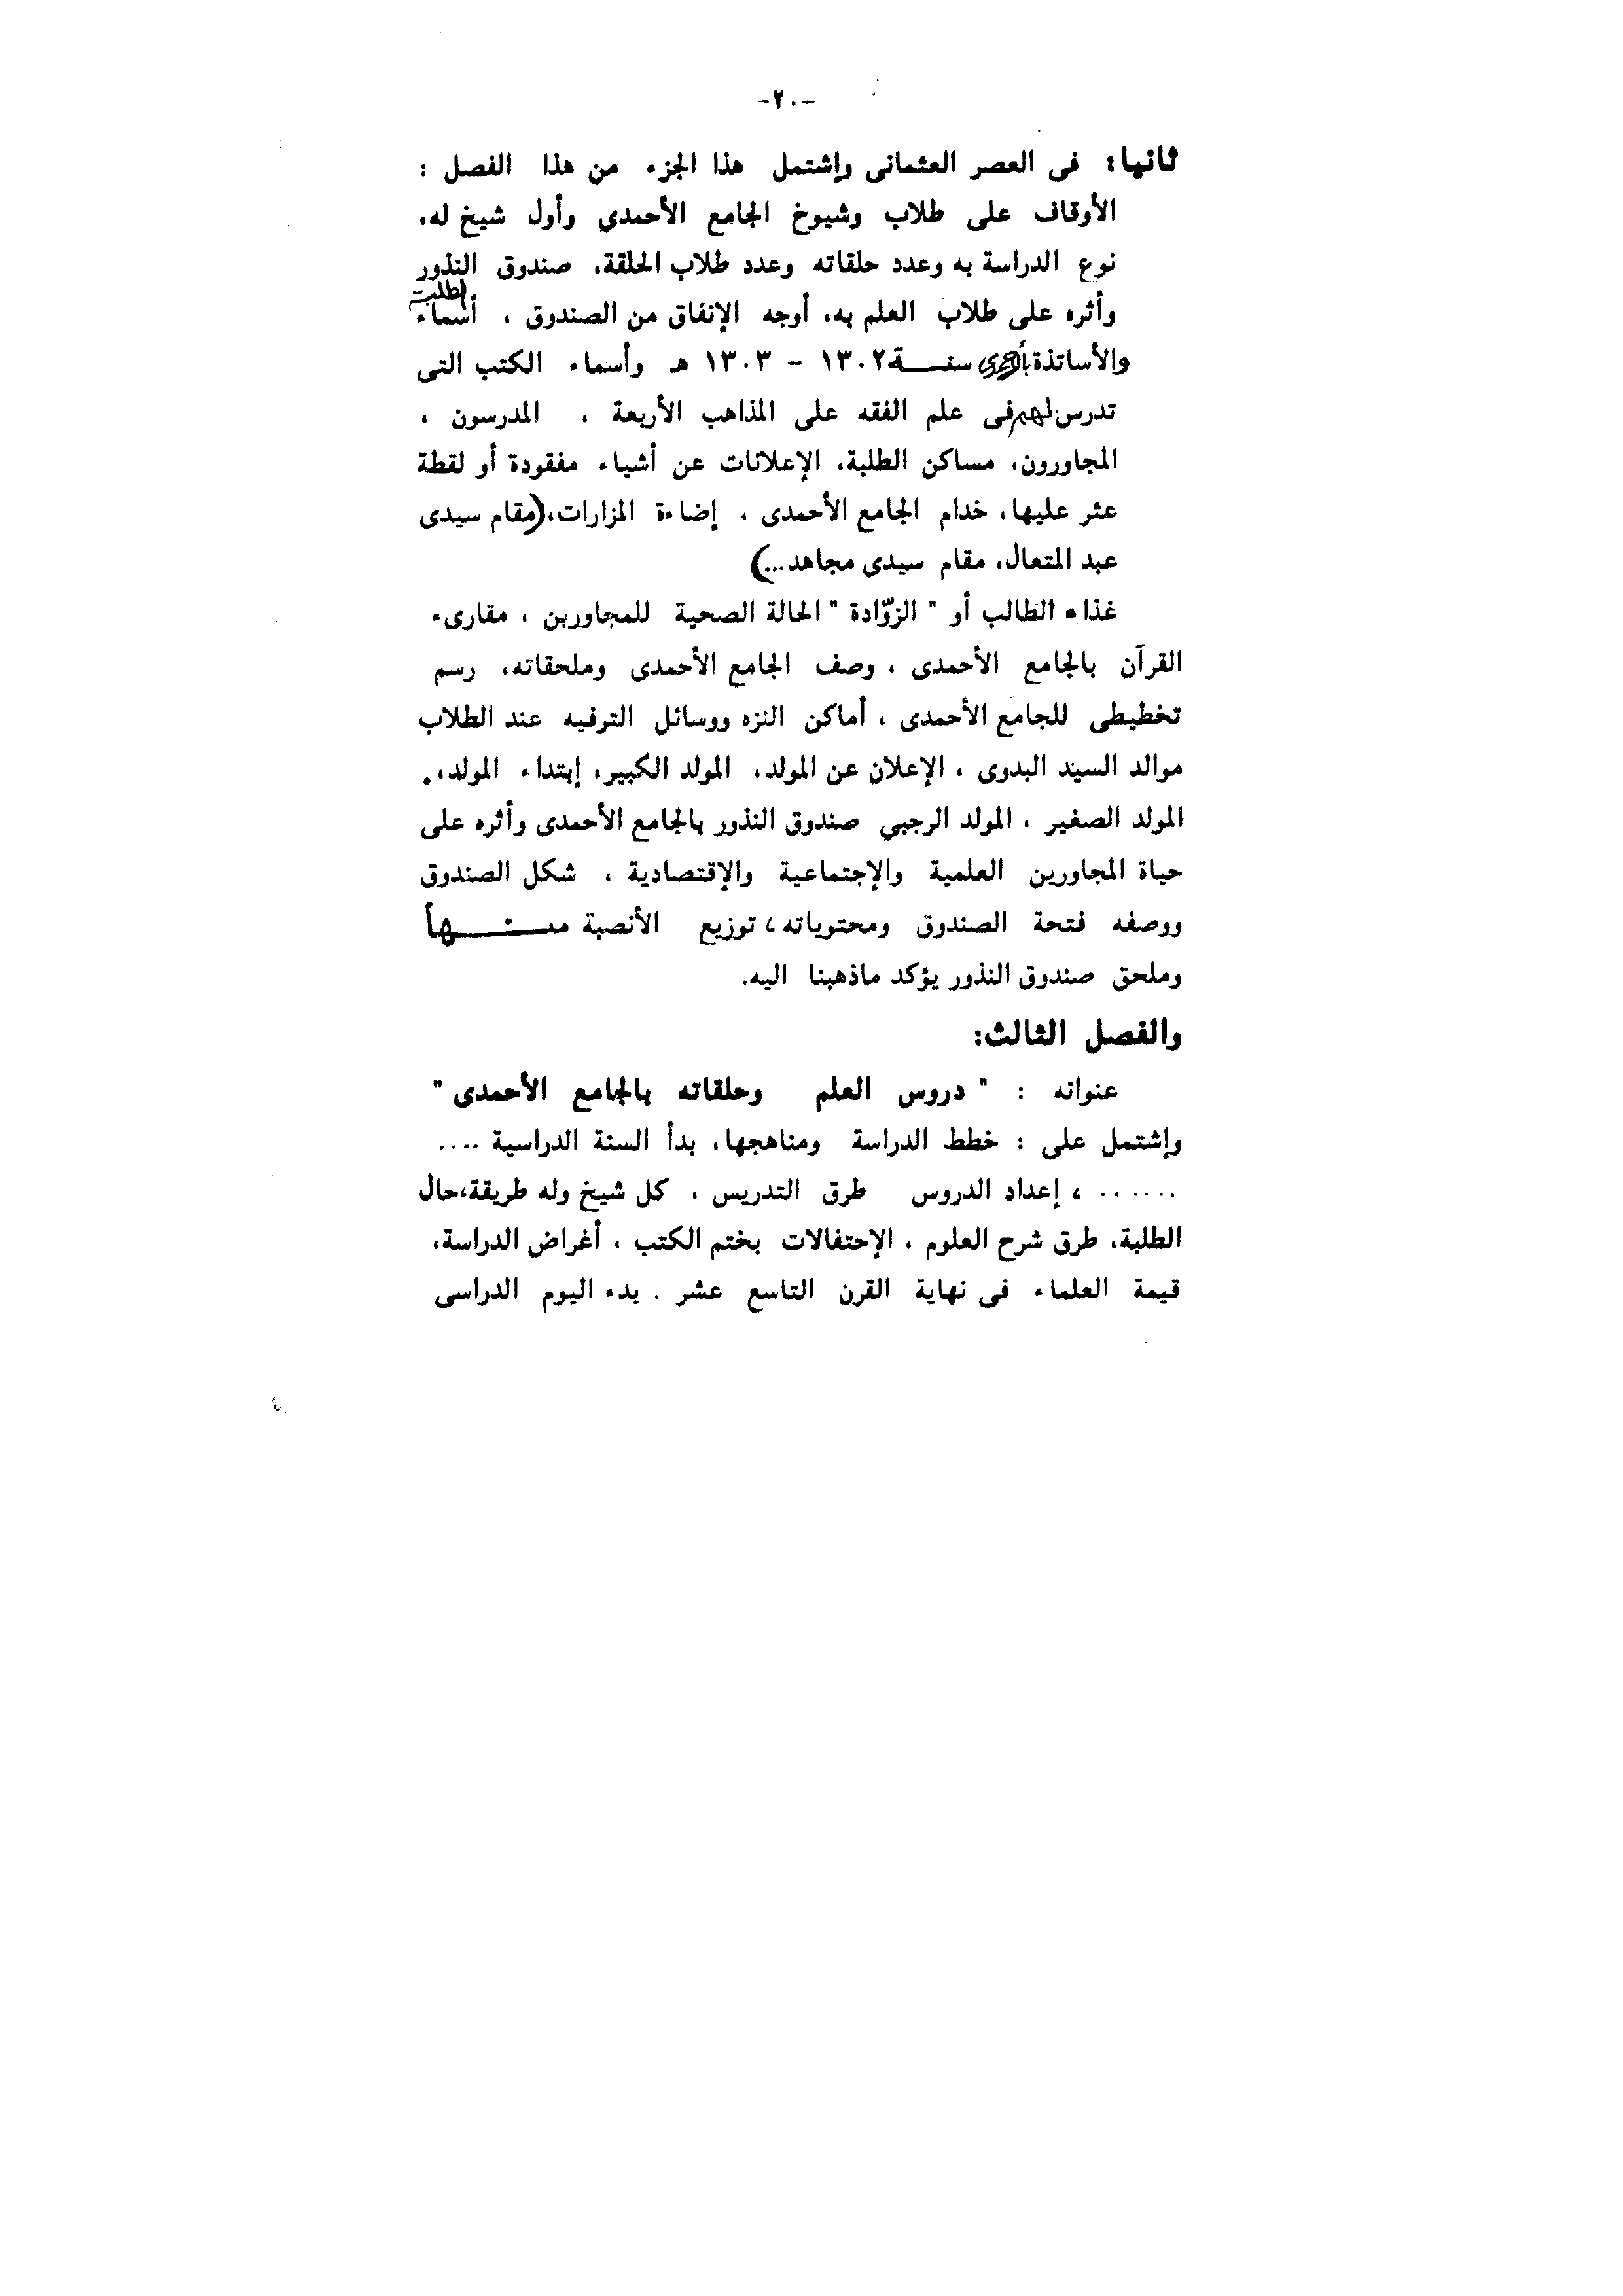 -٢٠-
ثانيا: فى العصر العثمانى وإشتمل هذا الجزء من هذا الفصل :
الأوقاف على طلاب وشيوخ الجامع الأحمدى وأول شيخ له،
نوع الدراسة به وعدد حلقاته وعدد طلاب الحلقة، صندوق النذور
وأثره على طلاب العلم به، أوجه الإنفاق من الصندوق ، أسماء الطلبة
والأساتذة سنة ١٣٠٢ - ١٣٠٣ هـ وأسماء الكتب التى
تدرس لهم فى علم الفقه على المذاهب الأربعة ، المدرسون ،
المجاورون، مساكن الطلبة، الإعلانات عن أشياء مفقودة أو لقطة
عثر عليها، خدام الجامع الأحمدى ، إضاءة المزارات، (مقام سيدى
عبد المتعال، مقام سيدى مجاهد...)
غذاء الطالب أو " الزوّادة " الحالة الصحية للمجاورين ، مقارىء
القرآن بالجامع الأحمدى ، وصف الجامع الأحمدى وملحقاته، رسم
تخطيطى للجامع الأحمدى ، أماكن النزه ووسائل الترفيه عند الطلاب
موالد السيد البدوى ، الإعلان عن المولد، المولد الكبير، إبتداء المولد،.
المولد الصغير ، المولد الرجبي صندوق النذور بالجامع الأحمدى وأثره على
حياة المجاورين العلمية والإجتماعية والإقتصادية ، شكل الصندوق
ووصفه فتحة الصندوق ومحتوياته ، توزيع الأنصبة منها
وملحق صندوق النذور يؤكد ماذهبنا اليه.
والفصل الثالث:
عنوانه : " دروس العلم وحلقاته بالجامع الأحمدى "
وإشتمل على : خطط الدراسة ومناهجها، بدأ السنة الدراسية ....
...... ، إعداد الدروس طرق التدريس ، كل شيخ وله طريقة،حال
الطلبة، طرق شرح العلوم ، الإحتفالات بختم الكتب ، أغراض الدراسة،
قيمة العلماء فى نهاية القرن التاسع عشر . بدء اليوم الدراسى